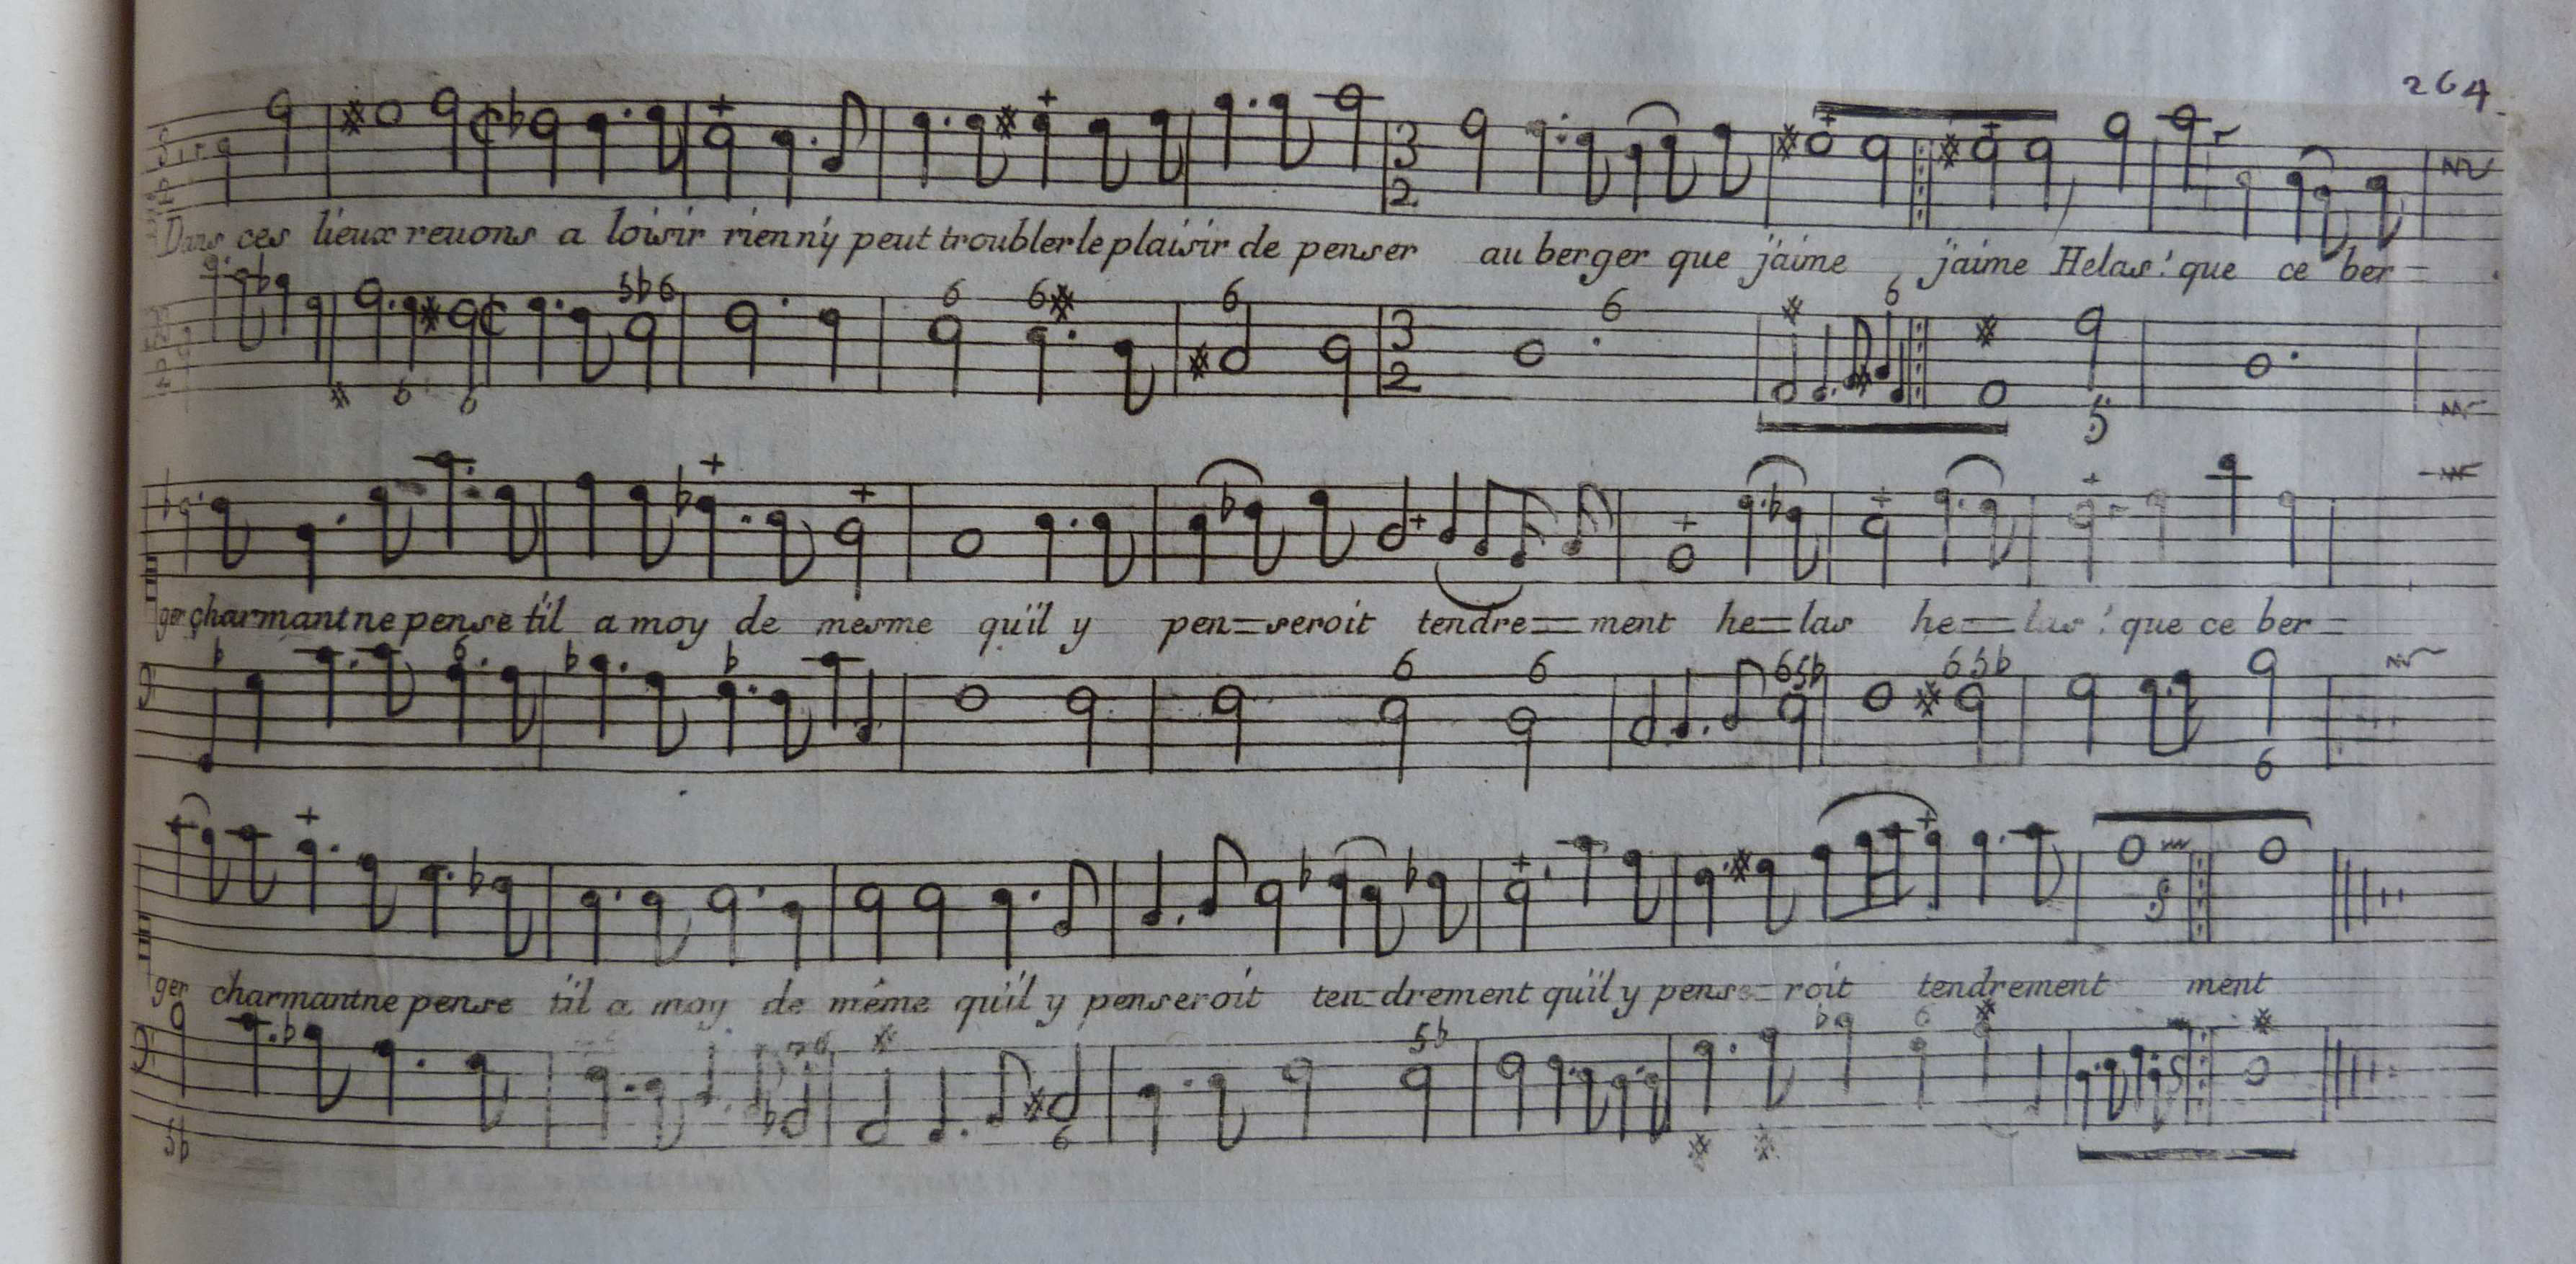 264
Dans ces lieux revons a loisir rien n'y peut troubler le plaisir de penser au berger que j'aime j'aime Helas! que ce ber=
ger charmant ne pense t'il a moy de mesme qu'il y pen=seroit tendre=ment he=las he=las! que ce ber=
ger charmant ne pense t'il a moy de même qu'il y penseroit ten=drement qu'il y pense=roit tendrement ment